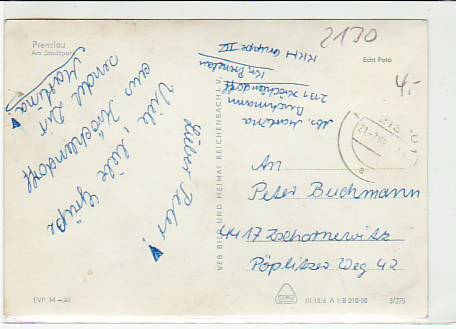 Prenzlau
Am Stadtpark
Lieber Peter!
Viele, liebe Grüße
aus Kröchlendorff
sendet Dir
Martina!
VEB BILD UND HEIMAT REICHENBACH I. V.
2130
Echt Foto
4,-
Abs. Martina
Buchmann
2131 Kröchlendorff
Krs. Prenzlau
KKH Gruppe IV
An
Peter Buchmann
4417 Zschornewitz
Pöplitzer Weg 42
EVP M -,20
III/18/6 A 1/B 210/68
5/275